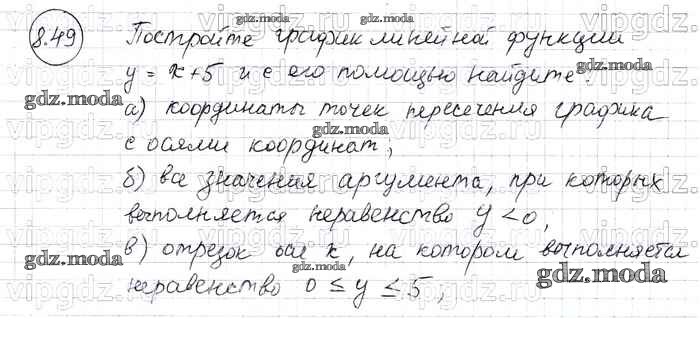 8.49 Постройте график линейной функции
y = x + 5 и с его помощью найдите:
а) координаты точек пересечения графика
с осями координат;
б) все значения аргумента, при которых
выполняется неравенство y < 0;
в) отрезок оси x, на котором выполняется
неравенство 0 ≤ y ≤ 5;
gdz.moda
vipgdz.ru